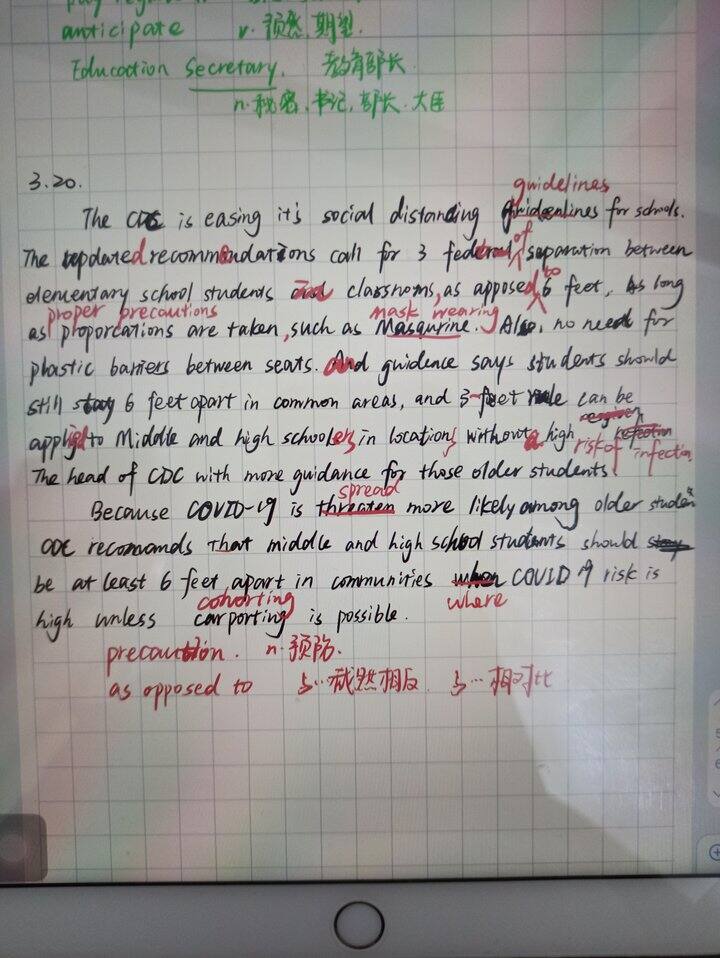 pay
anticipate v. 预感, 期望.
Education Secretary. 教育部长
n. 秘密, 书记, 部长. 大臣
3.20.
guidelines
The CDC is easing it's social distanding guidenlines for schools.
The updated recommendations call for 3 of separation between
elementary school students and classrooms, as apposed to 6 feet, As long
proper precautions mask wearing
as proporcations are taken, such as Masqurine. Also, no need for
plastic barriers between seats. And guidence says students should
still stay 6 feet apart in common areas, and 3-feet rule can be
applied to Middle and high schoolers in locations without a high risk of infection
The head of CDC with more guidance for those older students.
spread
Because COVID-19 is threaten more likely among older student
CDC recomands That middle and high school students should stay
be at least 6 feet apart in communities when COVID 19 risk is
cohorting where
high unless carporting is possible.
precaution. n. 预防.
as opposed to 与…截然相反. 与…相对比